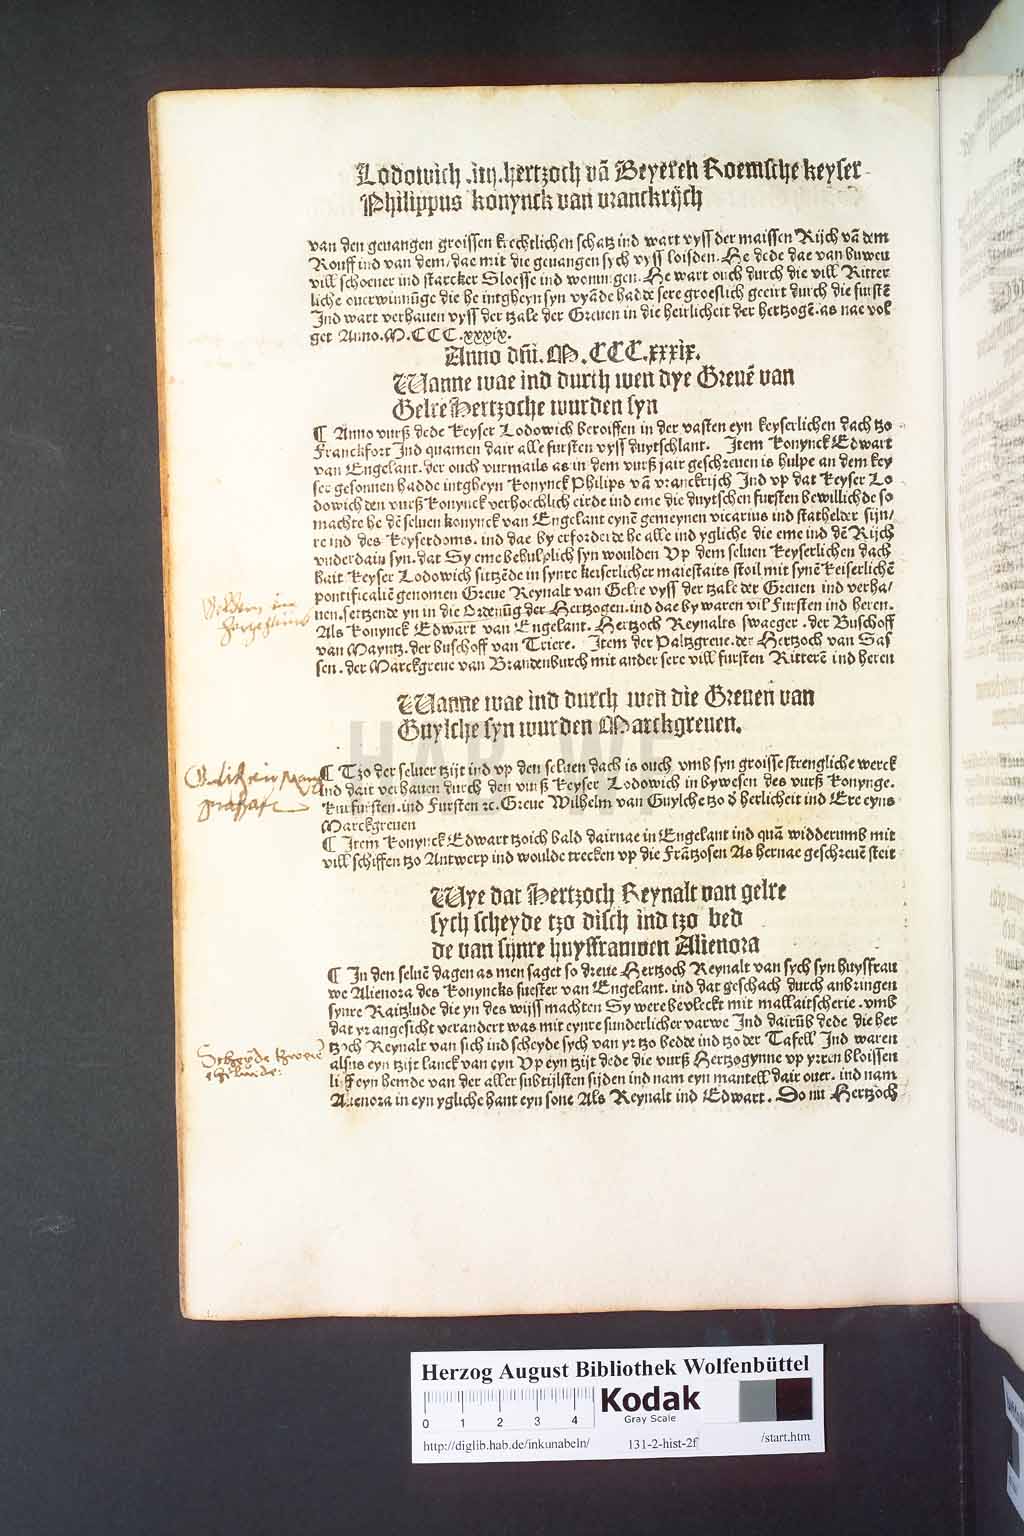 Lodowich .iiij. hertzoch vā Beyeren Roemsche keyser
Philippus konynck van vranckrijch
van den geuangen groissen krechtlichen schatz ind wart vyss der maissen Rijch vā dem
Rouff ind van dem, dae mit die geuangen sych vyss loisden. He dede dae van buwen
vill schoener ind starcker Sloesse ind wonungen. He wart ouch durch die vill Ritter
liche ouerwinnūge die he intgheyn syn vyāde hadde sere groeslich geeirt durch die furstē
Ind wart verhauen vyss der tzale der Greuen in die heirlicheit der hertzogē. as nae vol
get Anno. M. CCC. xxxix.
Anno dñi. M. CCC. xxxix.
Wanne wae ind durch wen dye Greuē van
Gelre Hertzoche wurden syn
¶ Anno vurß dede keyser Lodowich beroiffen in der vasten eyn keyserlichen dach tzo
Franckfort Ind quamen dair alle fursten vyss duytschlant. Item konynck Edwart
van Engelant. der ouch vurmails as in dem vurß jair geschreuen is hulpe an dem key
ser gesonnen hadde intgheyn konynck Philips vā vranckrijch Ind vp dat keyser Lo
dowich den vurß konynck verhoechlich eirde ind eme die duytschen fursten bewillichde so
machte he dē seluen konynck van Engelant eynē gemeynen vicarius ind stathelder sijn/
re ind des keyserdoms. ind dae by erforderde he alle ind ygliche die eme ind dē Rijch
vnderdain syn. dat Sy eme behulplich syn woulden Vp dem seluen keyserlichen dach
hait keyser Lodowich sittzēde in synre keiserlicher maiestaits stoil mit synē keiserlichē
pontificaliē genomen Greue Reynalt van Gelre vyss der tzale der Greuen ind verha/
uen. settzende yn in die Ordenūg der Hertzogen. ind dae by waren vil Fursten ind heren.
Als konynck Edwart van Engelant. Hertzoch Reynalts swaeger. der Buschoff
van Mayntz. der buschoff van Triere. Item der Paltzgreue. der Hertzoch van Sas
sen. der Marckgreue van Brandenburch mit ander sere vill fursten Ritterē ind heren
Wanne wae ind durch wen die Greuen van
Guylche syn wurden Marckgreuen.
¶ Tzo der seluer tzijt ind vp den seluen dach is ouch vmb syn groisse strengliche werck
ind dait verhauen durch den vurß keyser Lodowich in bywesen des vurß konynge.
kurfursten. ind Fursten ꝛc. Greue Wilhelm van Guylche tzo d herlicheit ind Ere eyns
Marckgreuen
¶ Item konynck Edwart tzoich bald dairnae in Engelant ind quā widderumb mit
vill schiffen tzo Antwerp ind woulde trecken vp die Frātzosen As hernae geschreuē steit
Wye dat Hertzoch Reynalt van gelre
sych scheyde tzo disch ind tzo bed
de van sijnre huysfrauwen Alienora
¶ In den seluē dagen as men saget so dreue Hertzoch Reynalt van sych syn huysfrau
we Alienora des konyncks suester van Engelant. ind dat geschach durch anbringen
synre Raitzlude die yn des wijss machten Sy were bevleckt mit mallaitscherie. vmb
dat yr angesicht verandert was mit eynre sunderlicher varwe Ind dairūb dede die her
tzoch Reynalt van sich ind scheyde sych van yr tzo bedde ind tzo der Tafell Ind waren
alsus eyn tzijt lanck van eyn Vp eyn tzijt dede die vurß Hertzogynne vp yren bloissen
lijff eyn hemde van der aller subtijlsten sijden ind nam eyn mantell dair ouer. ind nam
Alienora in eyn ygliche hant eyn sone Als Reynalt ind Edwart. Do nu Hertzoch
HAB WF
Herzog August Bibliothek Wolfenbüttel
0 1 2 3 4
Kodak
Gray Scale
http://diglib.hab.de/inkunabeln/ 131-2-hist-2f /start.htm